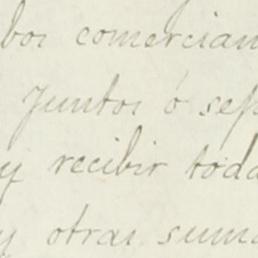 bos comercian
Juntos ó sep
y recibir toda
y otras suma